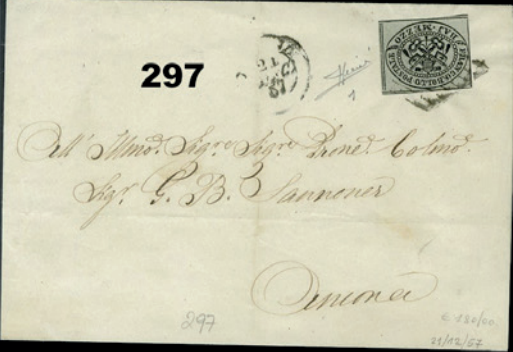 297
21
67
FRANCO BOLLO POSTALE
MEZZO BAJ
All' Illmo. Sigre. Sigre. Prone. Colmo.
Sigr. G. B.
Ancona
297
€ 130/00
21/12/67